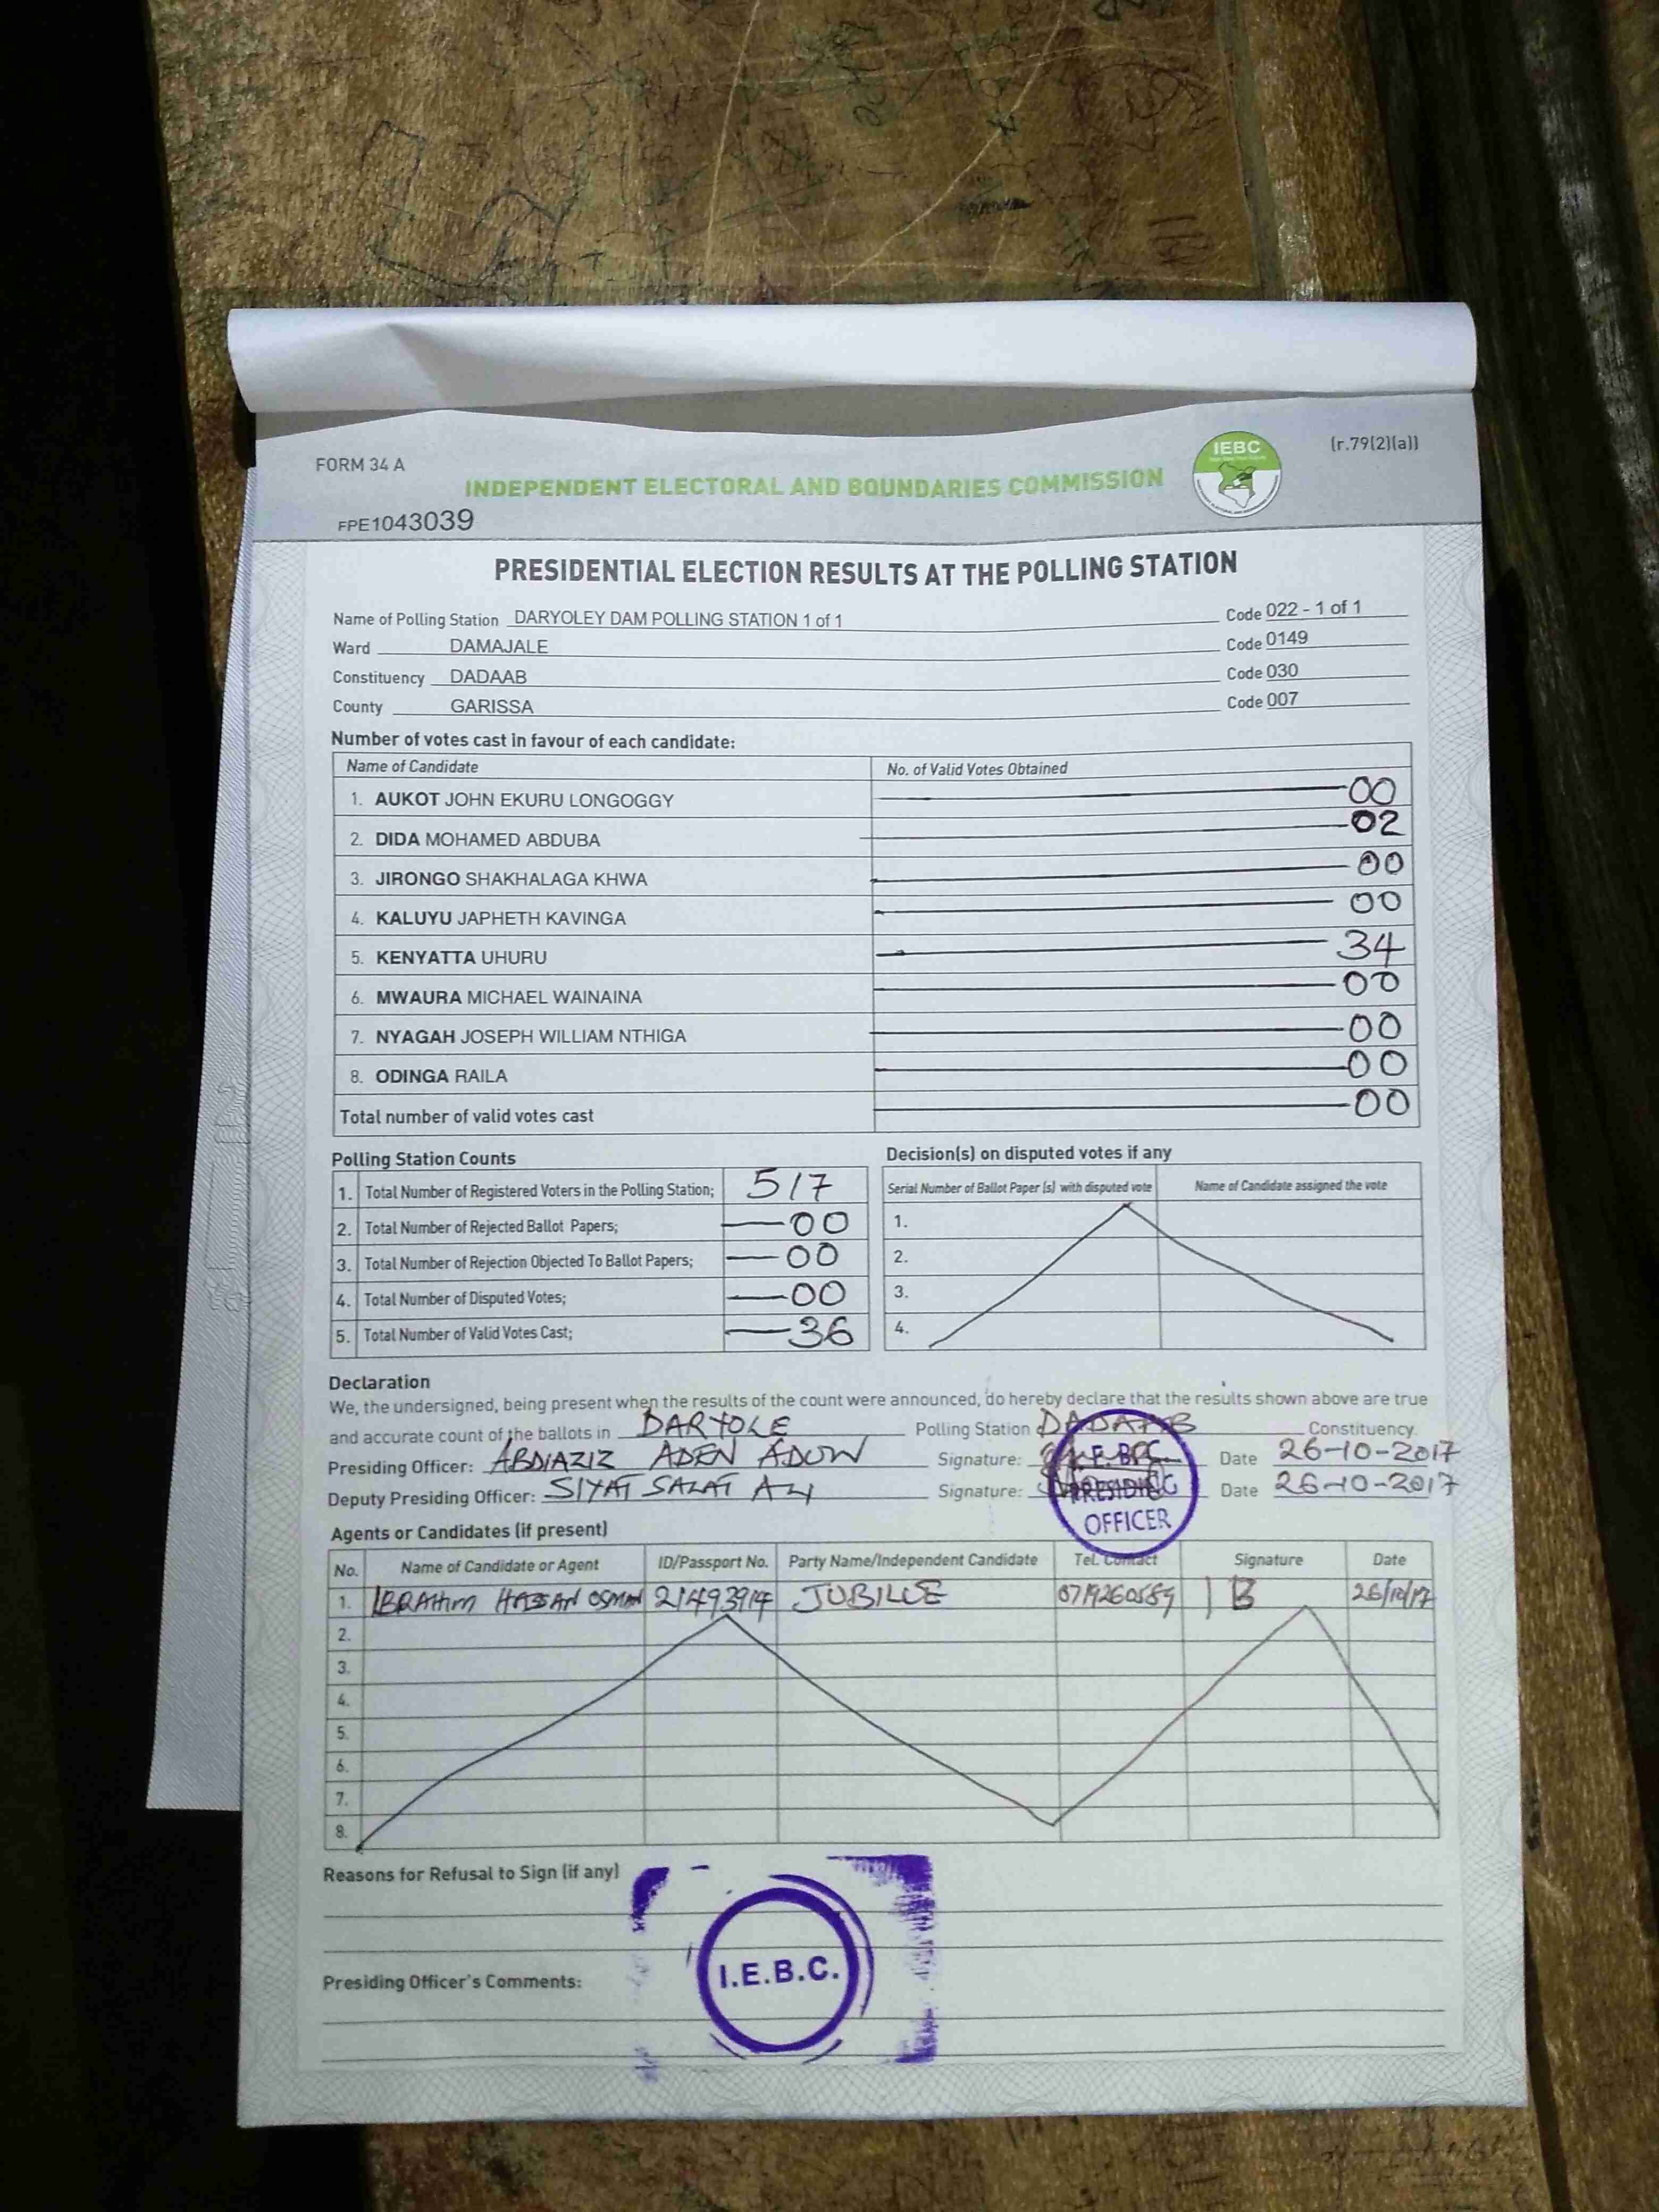 FORM 34 A
(r.79(2)(a))
IEBC
INDEPENDENT ELECTORAL AND BOUNDARIES COMMISSION
FPE1043039
PRESIDENTIAL ELECTION RESULTS AT THE POLLING STATION
Name of Polling Station DARYOLEY DAM POLLING STATION 1 of 1 Code 022 - 1 of 1
Ward DAMAJALE Code 0149
Constituency DADAAB Code 030
County GARISSA Code 007
Number of votes cast in favour of each candidate:
Name of Candidate No. of Valid Votes Obtained
1. AUKOT JOHN EKURU LONGOGGY 00
2. DIDA MOHAMED ABDUBA 02
3. JIRONGO SHAKHALAGA KHWA 00
4. KALUYU JAPHETH KAVINGA 00
5. KENYATTA UHURU 34
6. MWAURA MICHAEL WAINAINA 00
7. NYAGAH JOSEPH WILLIAM NTHIGA 00
8. ODINGA RAILA 00
Total number of valid votes cast 00
Polling Station Counts
1. Total Number of Registered Voters in the Polling Station; 517
2. Total Number of Rejected Ballot Papers; 00
3. Total Number of Rejection Objected To Ballot Papers; 00
4. Total Number of Disputed Votes; 00
5. Total Number of Valid Votes Cast; 36
Decision(s) on disputed votes if any
Serial Number of Ballot Paper (s) with disputed vote Name of Candidate assigned the vote
1.
2.
3.
4.
Declaration
We, the undersigned, being present when the results of the count were announced, do hereby declare that the results shown above are true
and accurate count of the ballots in DARYOLE Polling Station DADAAB Constituency.
Presiding Officer: ABDIAZIZ ADEN ADOW Signature: Date 26-10-2017
Deputy Presiding Officer: SIYAT SALAT ALI Signature: Date 26-10-2017
PRESIDING
OFFICER
Agents or Candidates (if present)
No. Name of Candidate or Agent ID/Passport No. Party Name/Independent Candidate Tel. Contact Signature Date
1. IBRAHIM HASSAN OSMAN 21493914 JUBILEE 0719260589 IB 26/10/17
2.
3.
4.
5.
6.
7.
8.
Reasons for Refusal to Sign (if any)
I.E.B.C.
Presiding Officer's Comments: